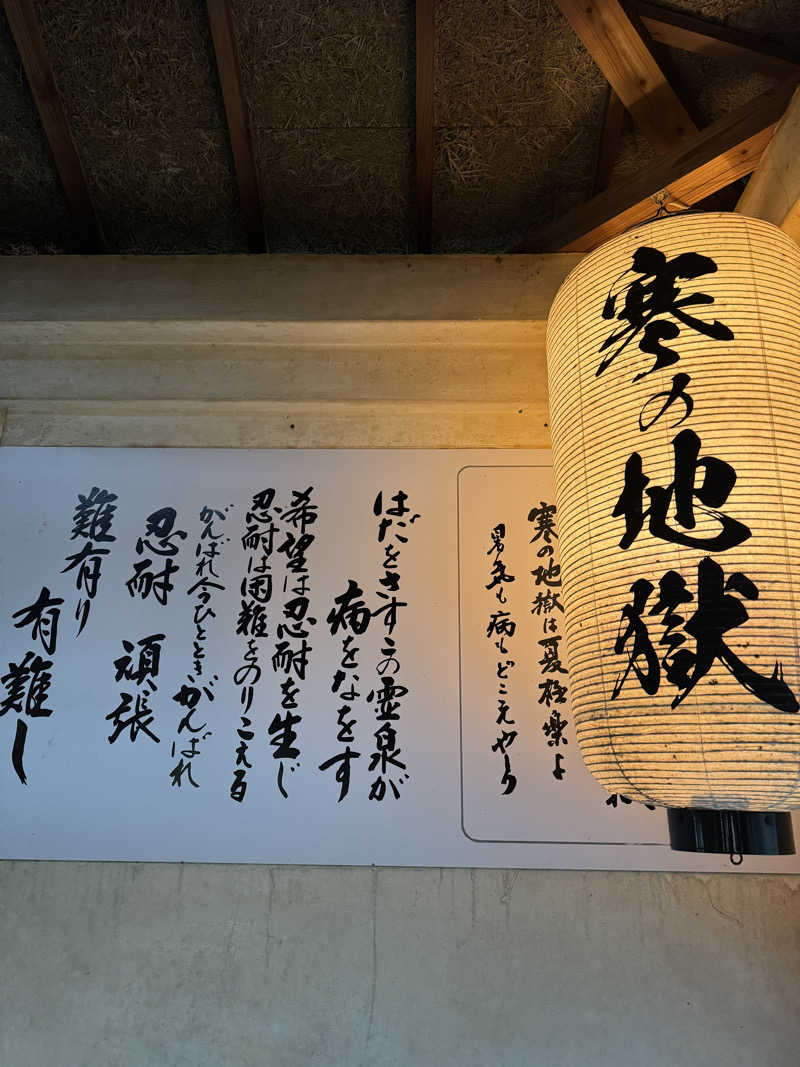 寒の地獄
寒の地獄は夏極楽よ
暑気も病もどこえやら
はだをさすこの霊泉が
病をなをす
希望は忍耐を生じ
忍耐は困難をのりこえる
がんばれ今ひとときがんばれ
忍耐 頑張
難有り
有難し